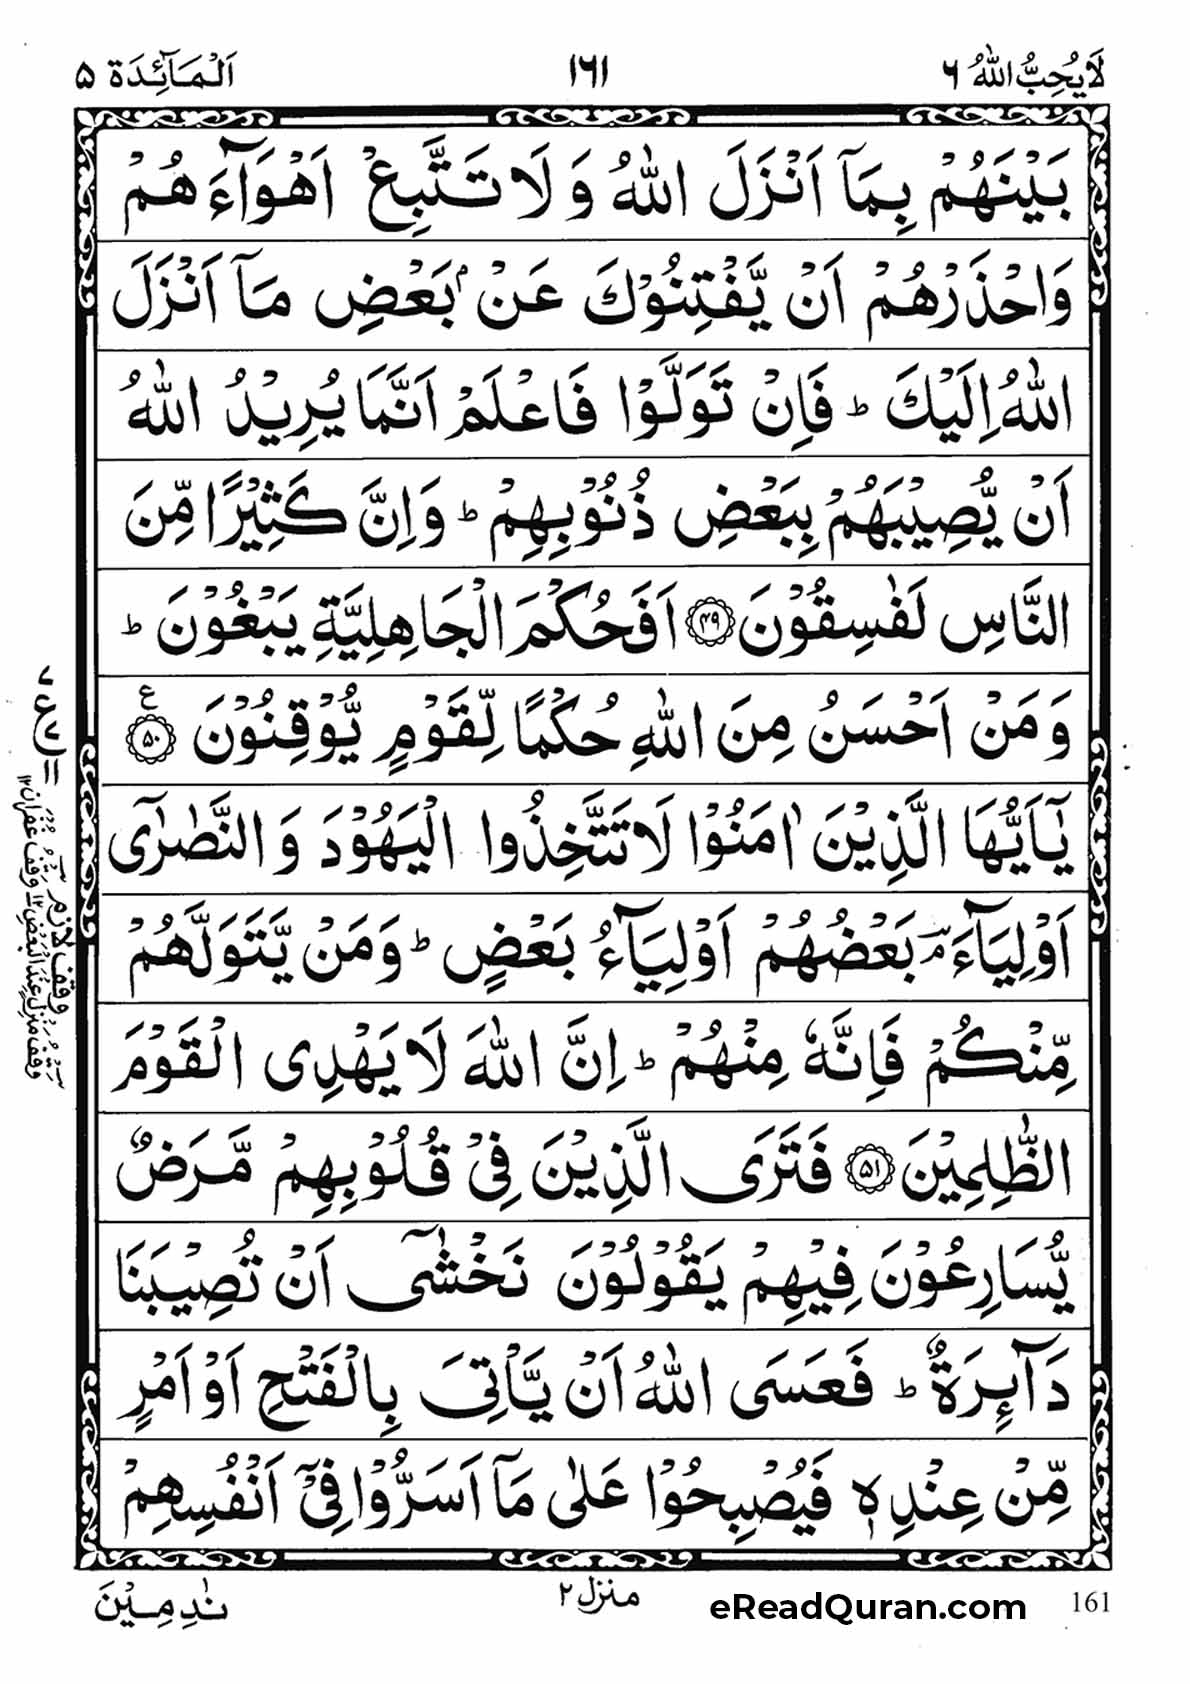 لَا يُحِبُّ اللّٰهُ ٦
١٦١
اَلْمَآئِدَة ٥
بَيْنَهُمْ بِمَآ اَنْزَلَ اللّٰهُ وَ لَا تَتَّبِعْ اَهْوَآءَ هُمْ
وَاحْذَرْهُمْ اَنْ يَّفْتِنُوْكَ عَنْۢ بَعْضِ مَآ اَنْزَلَ
اللّٰهُ اِلَيْكَ ؕ فَاِنْ تَوَلَّوْا فَاعْلَمْ اَنَّمَا يُرِيْدُ اللّٰهُ
اَنْ يُّصِيْبَهُمْ بِبَعْضِ ذُنُوْبِهِمْ ؕ وَاِنَّ كَثِيْرًا مِّنَ
النَّاسِ لَفٰسِقُوْنَ ۝٤٩ اَفَحُكْمَ الْجَاهِلِيَّةِ يَبْغُوْنَ ؕ
وَ مَنْ اَحْسَنُ مِنَ اللّٰهِ حُكْمًا لِّقَوْمٍ يُّوْقِنُوْنَ ۝٥٠ ع
يٰٓاَيُّهَا الَّذِيْنَ اٰمَنُوْا لَا تَتَّخِذُوا الْيَهُوْدَ وَ النَّصٰرٰٓى
اَوْلِيَآءَ ۘؔ بَعْضُهُمْ اَوْلِيَآءُ بَعْضٍ ؕ وَمَنْ يَّتَوَلَّهُمْ
مِّنْكُمْ فَاِنَّهٗ مِنْهُمْ ؕ اِنَّ اللّٰهَ لَا يَهْدِى الْقَوْمَ
الظّٰلِمِيْنَ ۝٥١ فَتَرَى الَّذِيْنَ فِىْ قُلُوْبِهِمْ مَّرَضٌ
يُّسَارِعُوْنَ فِيْهِمْ يَقُوْلُوْنَ نَخْشٰٓى اَنْ تُصِيْبَنَا
دَآئِرَةٌ ؕ فَعَسَى اللّٰهُ اَنْ يَّاْتِىَ بِالْفَتْحِ اَوْ اَمْرٍ
مِّنْ عِنْدِهٖ فَيُصْبِحُوْا عَلٰى مَآ اَسَرُّوْا فِىْٓ اَنْفُسِهِمْ
وقف لازم
نٰدِمِيْنَ
منزل ٢
eReadQuran.com
161